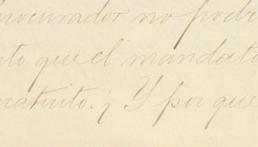 procurador no podr
to que el mandato
gratuito. ¿ Y por que